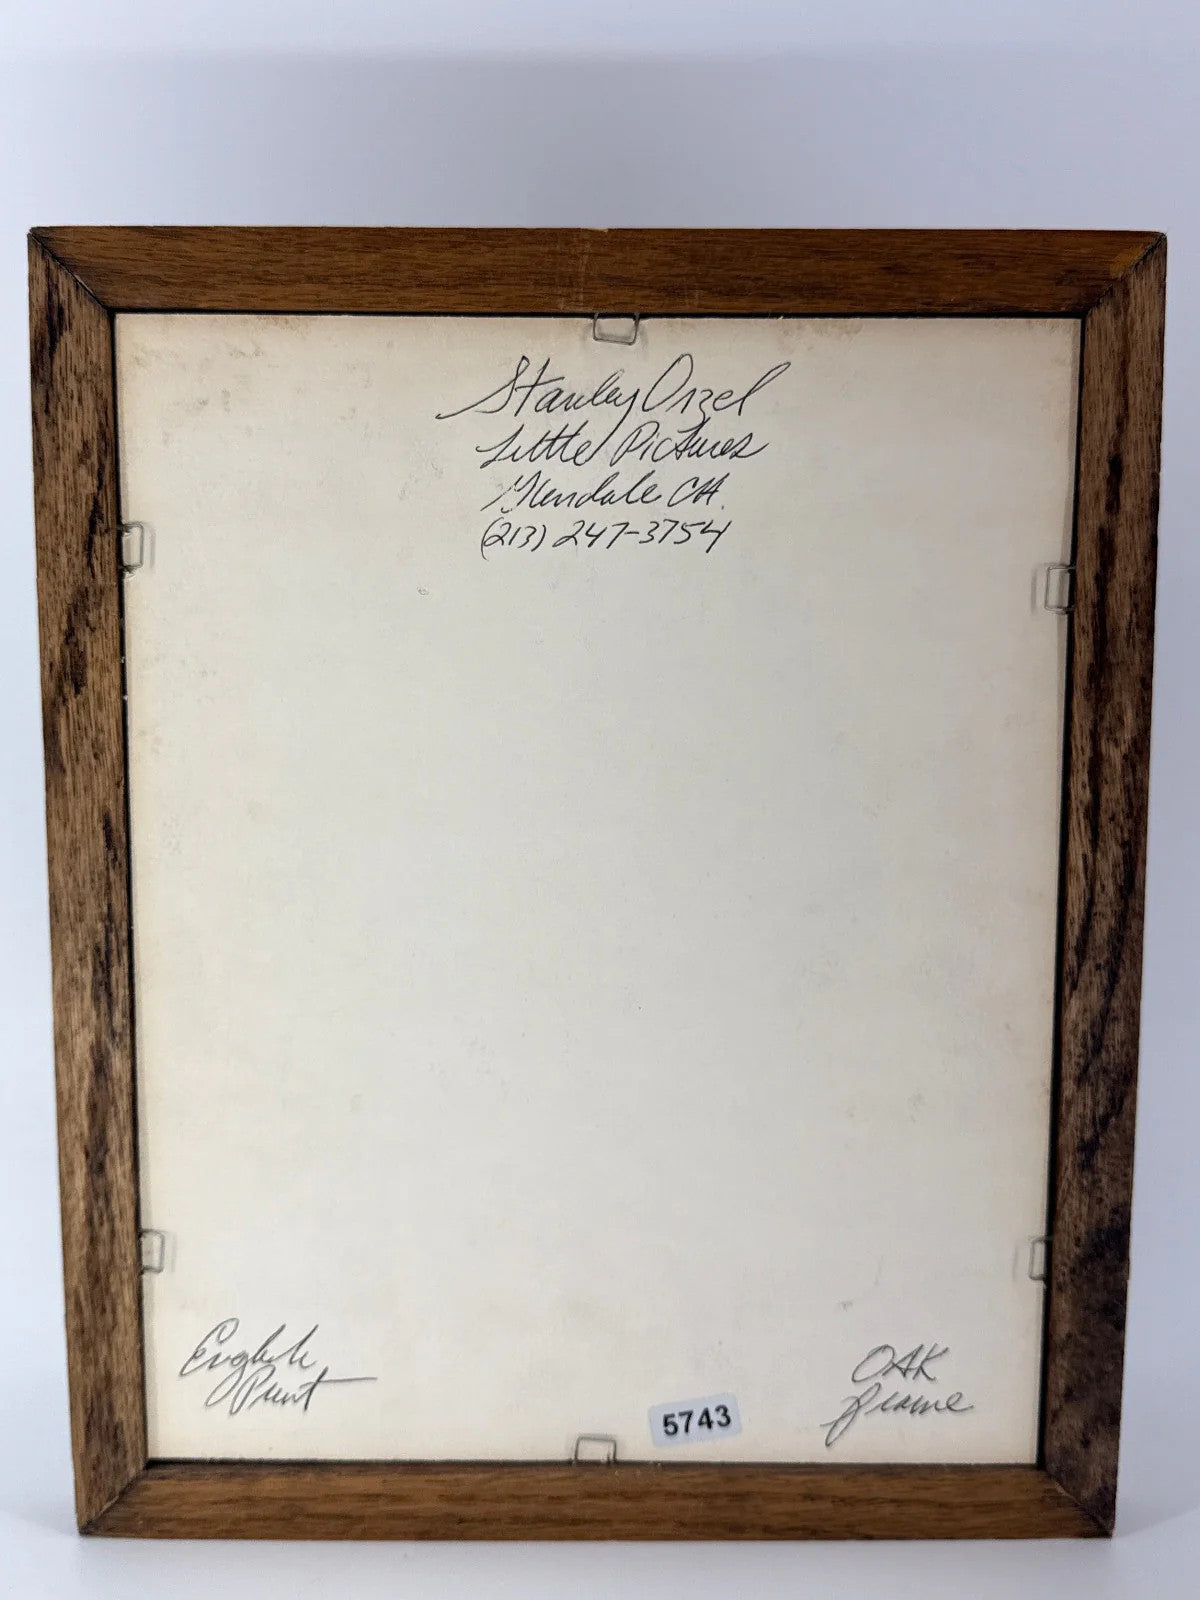 Stanley Orzel
Little Pictures
Glendale CA.
(213) 247-3754
English
Print
OAK
Frame
5743